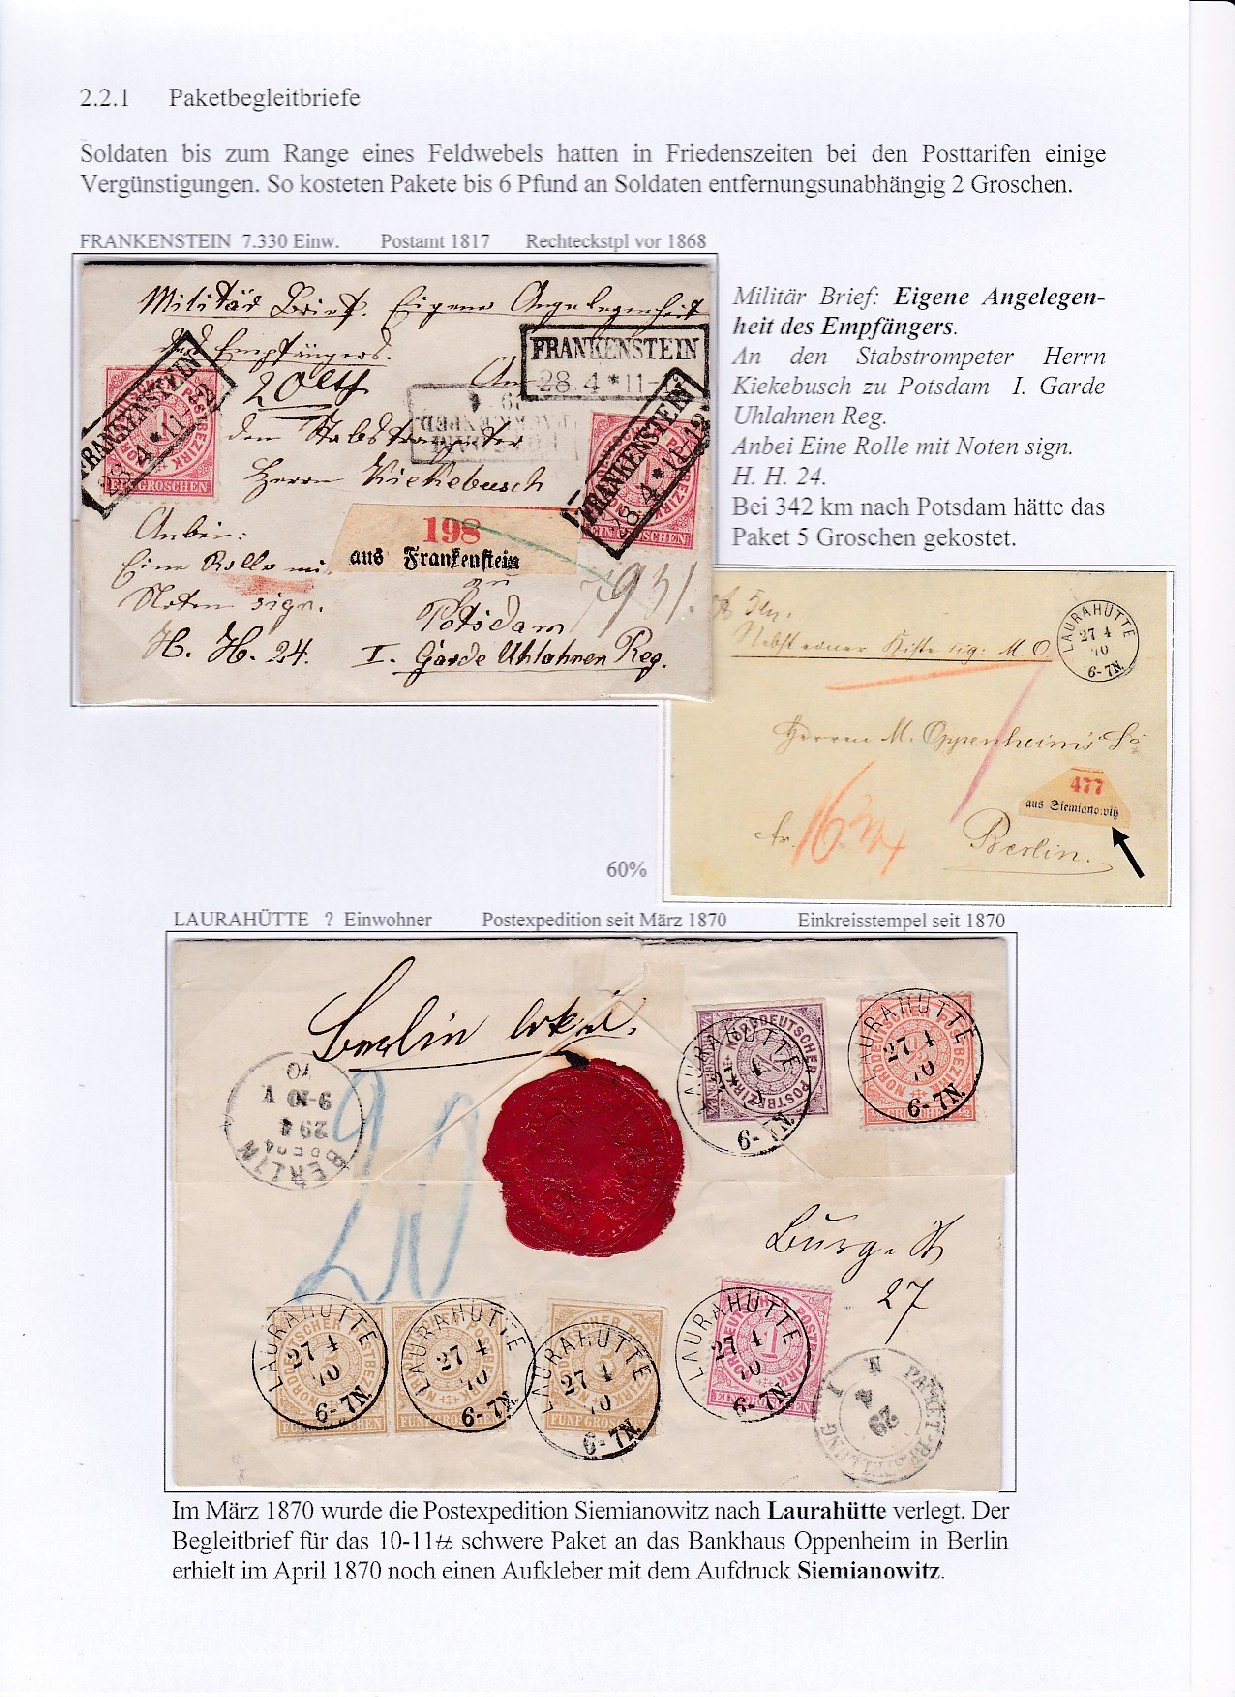 2.2.1 Paketbegleitbriefe
Soldaten bis zum Range eines Feldwebels hatten in Friedenszeiten bei den Posttarifen einige
Vergünstigungen. So kosteten Pakete bis 6 Pfund an Soldaten entfernungsunabhängig 2 Groschen.
FRANKENSTEIN 7.330 Einw. Postamt 1817 Rechteckstpl vor 1868
Militär Brief. Eigene Angelegenheit
des Empfängers.
An
dem Stabstrompeter
Herrn Kiekebusch
Anbei:
Eine Rolle mit
Noten sign.
H. H. 24.
zu
Potsdam
I. Garde Uhlahnen Reg.
FRANKENSTEIN
28. 4 * 11-12
FRANKENSTEIN
28. 4 * 11-12
FRANKENSTEIN
28. 4 * 11-12
EIN GROSCHEN
EIN GROSCHEN
198
aus Frankenstein
Militär Brief: Eigene Angelegen-
heit des Empfängers.
An den Stabstrompeter Herrn
Kiekebusch zu Potsdam I. Garde
Uhlahnen Reg.
Anbei Eine Rolle mit Noten sign.
H. H. 24.
Bei 342 km nach Potsdam hätte das
Paket 5 Groschen gekostet.
LAURAHÜTTE
27 4
70
6-7N.
Nebst einer Kiste sig: M O
Herren M. Oppenheim's
477
aus Siemianowitz
Berlin.
60%
LAURAHÜTTE ? Einwohner Postexpedition seit März 1870 Einkreisstempel seit 1870
Berlin
20
BERLIN
29 4
9-10 V
70
NORDDEUTSCHER POSTBEZIRK
LAURAHÜTTE
27 4
70
6-7N.
LAURAHÜTTE
27 4
70
6-7N.
27
LAURAHÜTTE
27 4
70
6-7N.
FÜNF GROSCHEN
LAURAHÜTTE
27 4
70
6-7N.
FÜNF GROSCHEN
LAURAHÜTTE
27 4
70
6-7N.
FÜNF GROSCHEN
LAURAHÜTTE
27 4
70
6-7N.
EIN GROSCHEN
PACKET-BESTELLUNG
29
4
Im März 1870 wurde die Postexpedition Siemianowitz nach Laurahütte verlegt. Der
Begleitbrief für das 10-11 schwere Paket an das Bankhaus Oppenheim in Berlin
erhielt im April 1870 noch einen Aufkleber mit dem Aufdruck Siemianowitz.